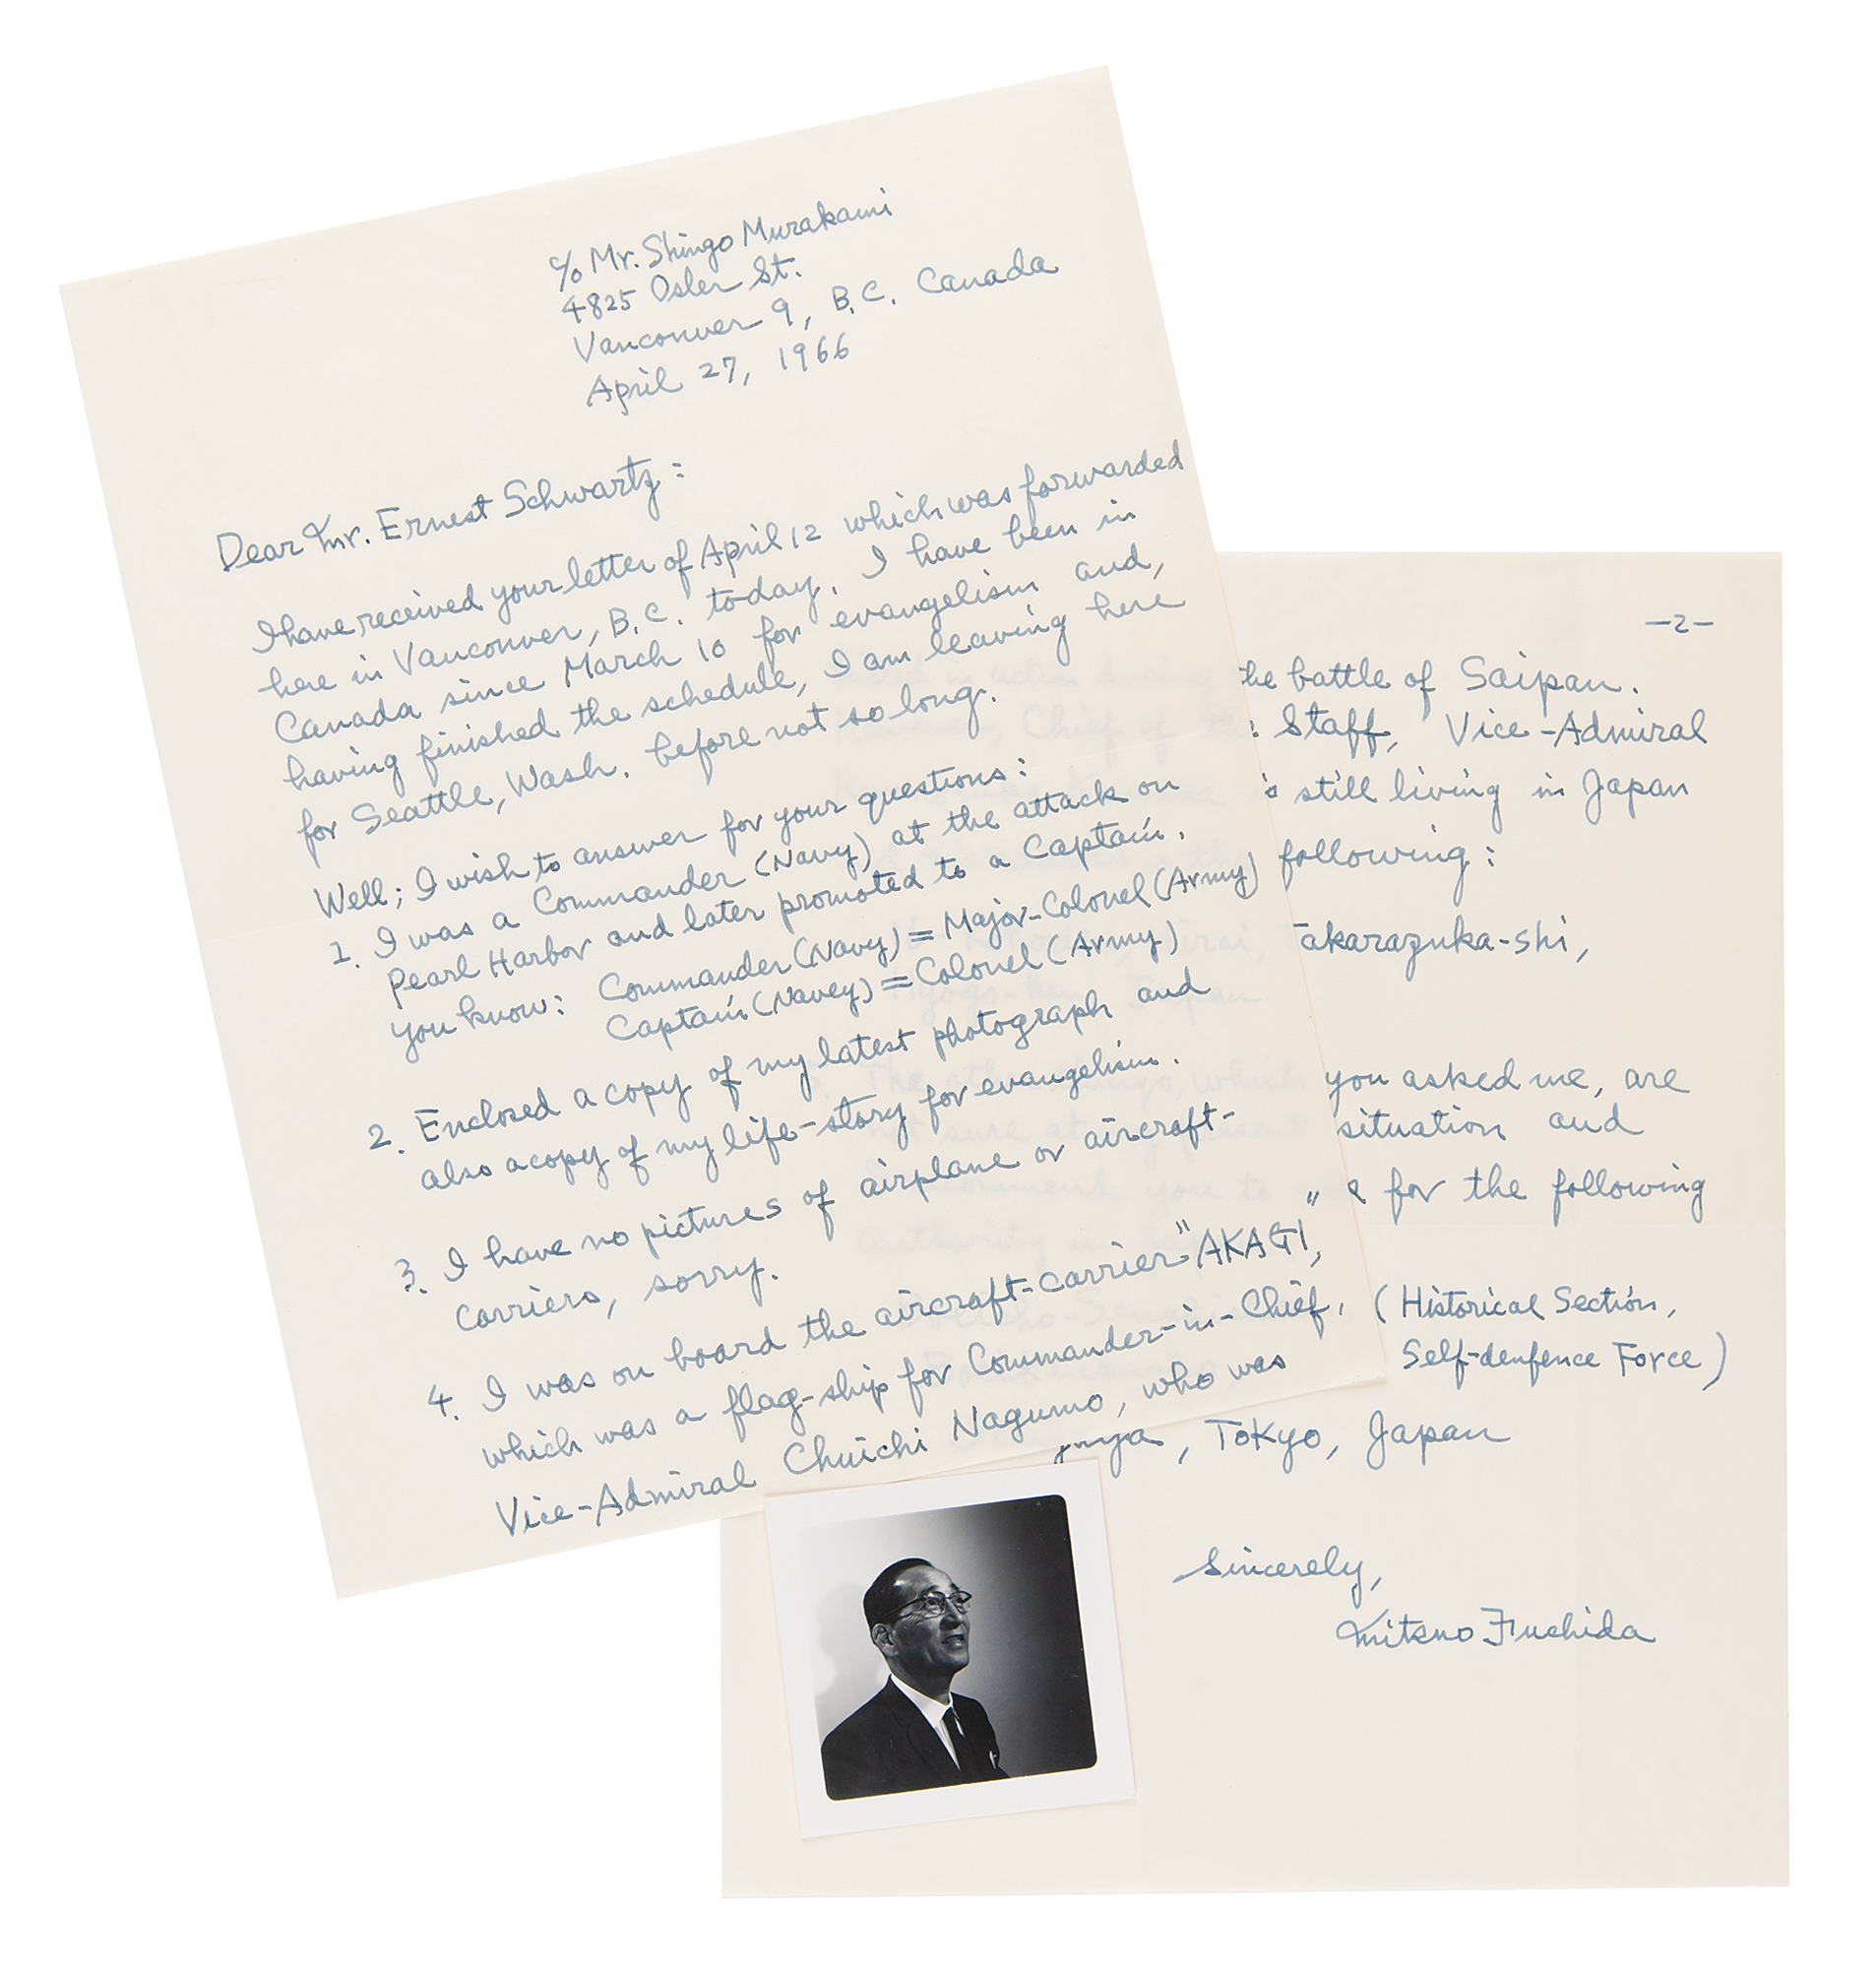 c/o Mr. Shingo Murakami
4825 Osler St.
Vancouver 9, B.C. Canada
April 27, 1966
Dear Mr. Ernest Schwartz:
I have received your letter of April 12 which was forwarded
here in Vancouver, B.C. today. I have been in
Canada since March 10 for evangelism and,
having finished the schedule, I am leaving here
for Seattle, Wash. before not so long.
Well; I wish to answer for your questions:
1. I was a Commander (Navy) at the attack on
Pearl Harbor and later promoted to a Captain.
you know: Commander (Navy) = Major-Colonel (Army)
Captain (Navey) = Colonel (Army)
2. Enclosed a copy of my latest photograph and
also a copy of my life-story for evangelism.
3. I have no pictures of airplane or aircraft-
carriers, sorry.
4. I was on board the aircraft-carrier "AKAGI,"
which was a flag-ship for Commander-in-Chief,
Vice-Admiral Chuichi Nagumo, who was
-2-
killed in action during the battle of Saipan.
However, Chief of the Staff, Vice-Admiral
is still living in Japan
the following:
Takarazuka-shi,
Hyogo-ken, Japan
5. The other things, which you asked me, are
not sure at my present situation and
recommend you to for the following
authority in
(Historical Section,
Self-denfence Force)
Tokyo, Japan
Sincerely,
Mitsuo Fuchida